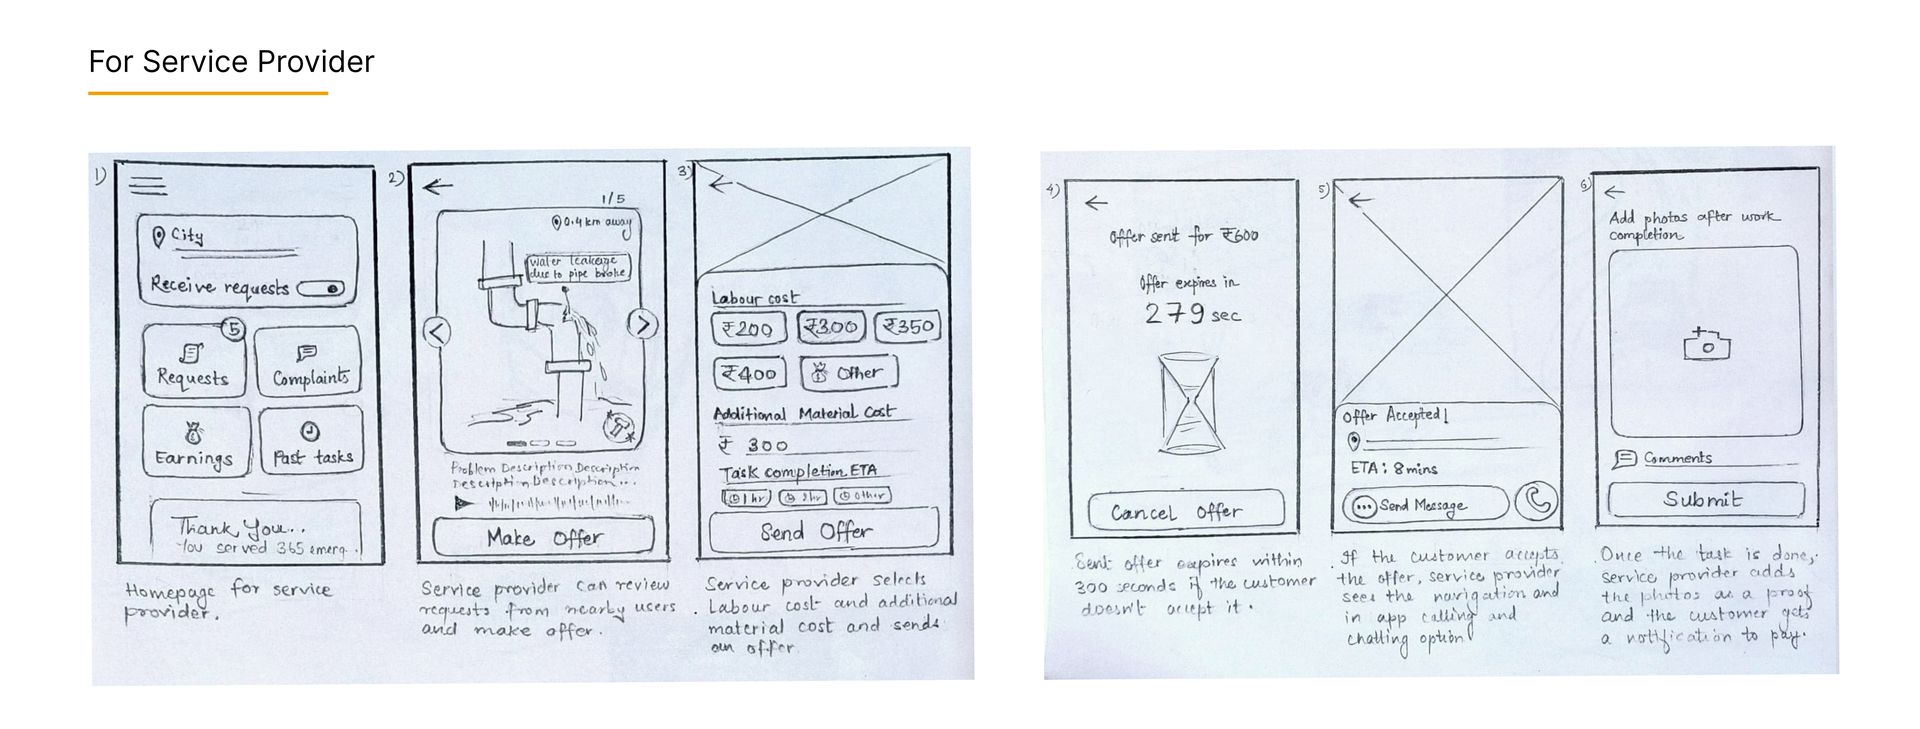 For Service Provider
1)
City
Receive requests
5
Requests
Complaints
Earnings
Past tasks
Thank You...
You served 365 emerg..
Homepage for service
provider.
2)
1/5
0.4 km away
Water leakage
due to pipe broke
Problem Description Description
Description Description...
Make Offer
Service provider can review
requests from nearby users
and make offer.
3)
Labour cost
₹200
₹300
₹350
₹400
Other
Additional Material Cost
₹ 300
Task completion ETA
1 hr
2 hr
Other
Send Offer
Service provider selects
Labour cost and additional
material cost and sends
an offer.
4)
Offer sent for ₹600
Offer expires in
279 sec
Cancel Offer
Sent offer expires within
300 seconds if the customer
doesn't accept it.
5)
Offer Accepted!
ETA: 8 mins
Send Message
If the customer accepts
the offer, service provider
sees the navigation and
in app calling and
chatting option
6)
Add photos after work
completion
Comments
Submit
Once the task is done,
service provider adds
the photos as a proof
and the customer gets
a notification to pay.